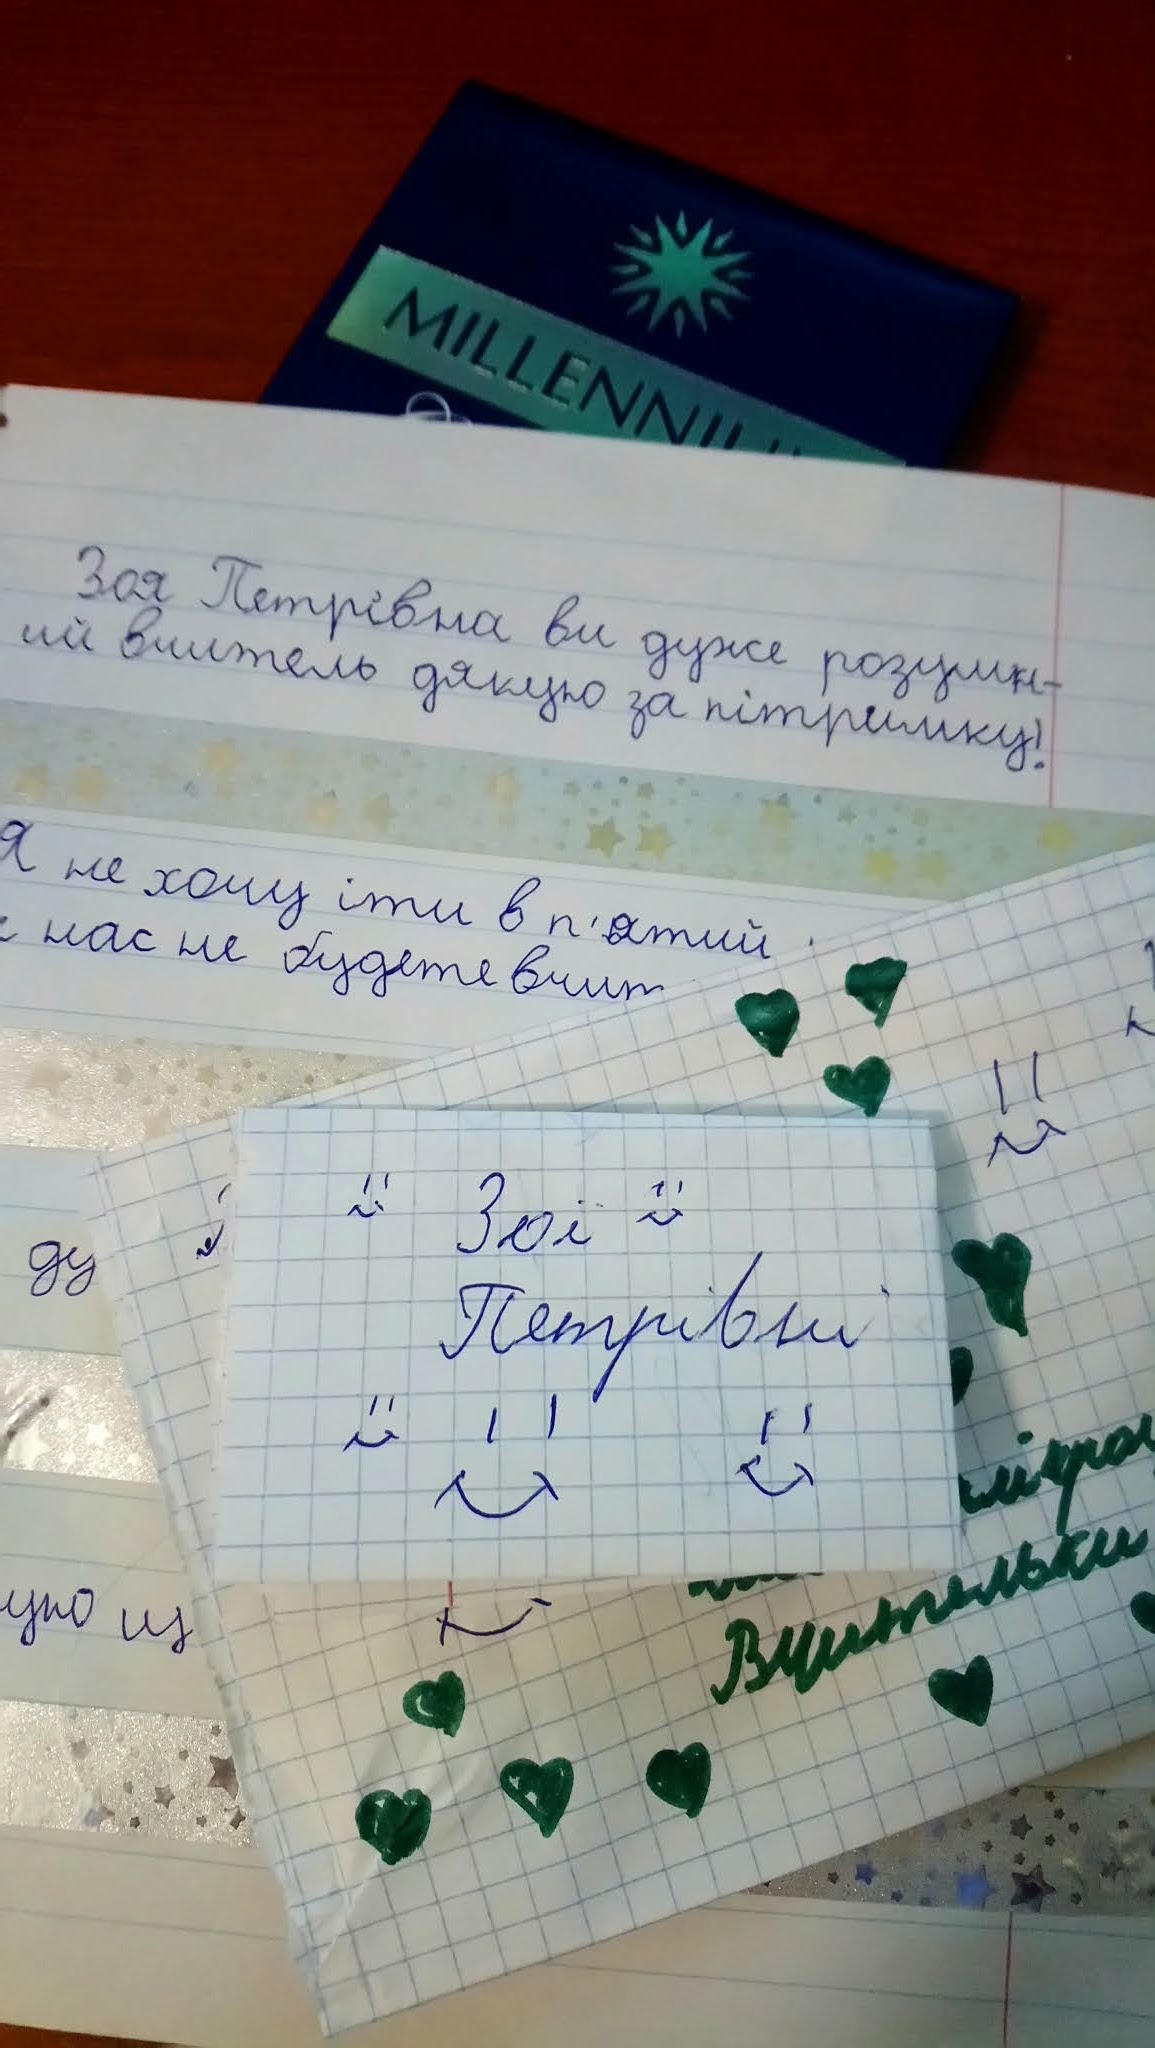 MILLENNIUM
Зоя Петрівна ви дуже розумн-
ий вчитель дякую за пітримку!
Я не хочу іти в п'ятий
нас не будете вчит
ду
Зої
Петрівні
Вчительки